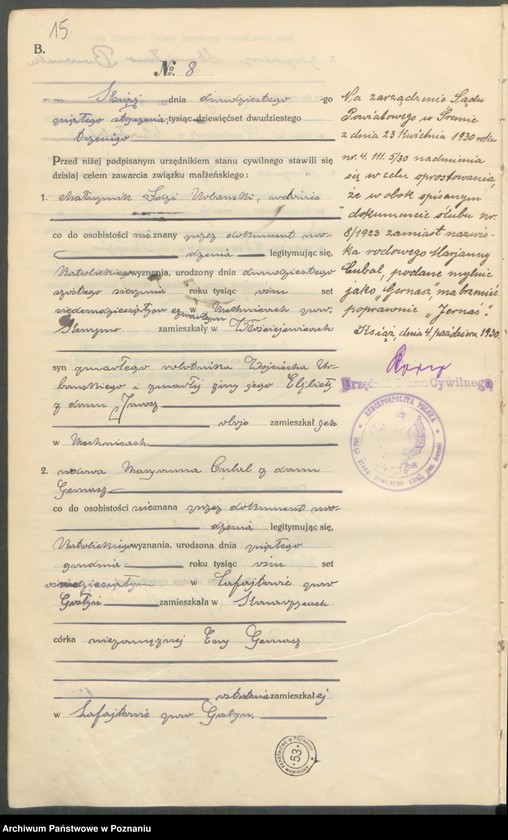 15
B.
№ 8
Książ dnia dwudziestego -go
piątego stycznia tysiąc dziewięćset dwudziestego
trzeciego
Przed niżej podpisanym urzędnikiem stanu cywilnego stawili się
dzisiaj celem zawarcia związku małżeńskiego:
1. Urbański, wdowiec
co do osobistości nieznany przez dokument uro-
dzenia legitymując się,
katolickiego wyznania, urodzony dnia dwudziestego
szóstego sierpnia roku tysiąc ośm set
siedemdziesiątym czwartym w Mechnicach pow.
zamieszkały w Włościejewicach
syn zmarłego robotnika Wojciecha Ur-
bańskiego i zmarłej żony jego Elżbiety
z domu
zamieszkał
w Mechnicach
2. wdowa Maryanna Cubal z domu
Gernasz
co do osobistości nieznana przez dokument uro-
dzenia legitymując się,
katolickiego wyznania, urodzona dnia piątego
grudnia roku tysiąc ośm set
w pow
Gostyń zamieszkała w
córka niezamężnej Ewy Gernasz
ostatnio zamieszkałej
w pow Gostyn.
Na zarządzenie Sądu
Powiatowego w Śremie
z dnia 23 kwietnia 1930 roku
nr. 4. III. 5/30 nadmienia
się w celu sprostowania,
że w obok spisanym
dokumencie ślubu nr.
8/1923 zamiast nazwis-
ka rodowego Marjanny
Cubal, podane mylnie
jako „Gernasz", ma brzmieć
poprawnie „Jernas".
Książ, dnia 4. października 1930.
Urzędnik Stanu Cywilnego
RZECZPOSPOLITA POLSKA
ARCHIWUM PAŃSTWOWE W POZNANIU
53
Archiwum Państwowe w Poznaniu